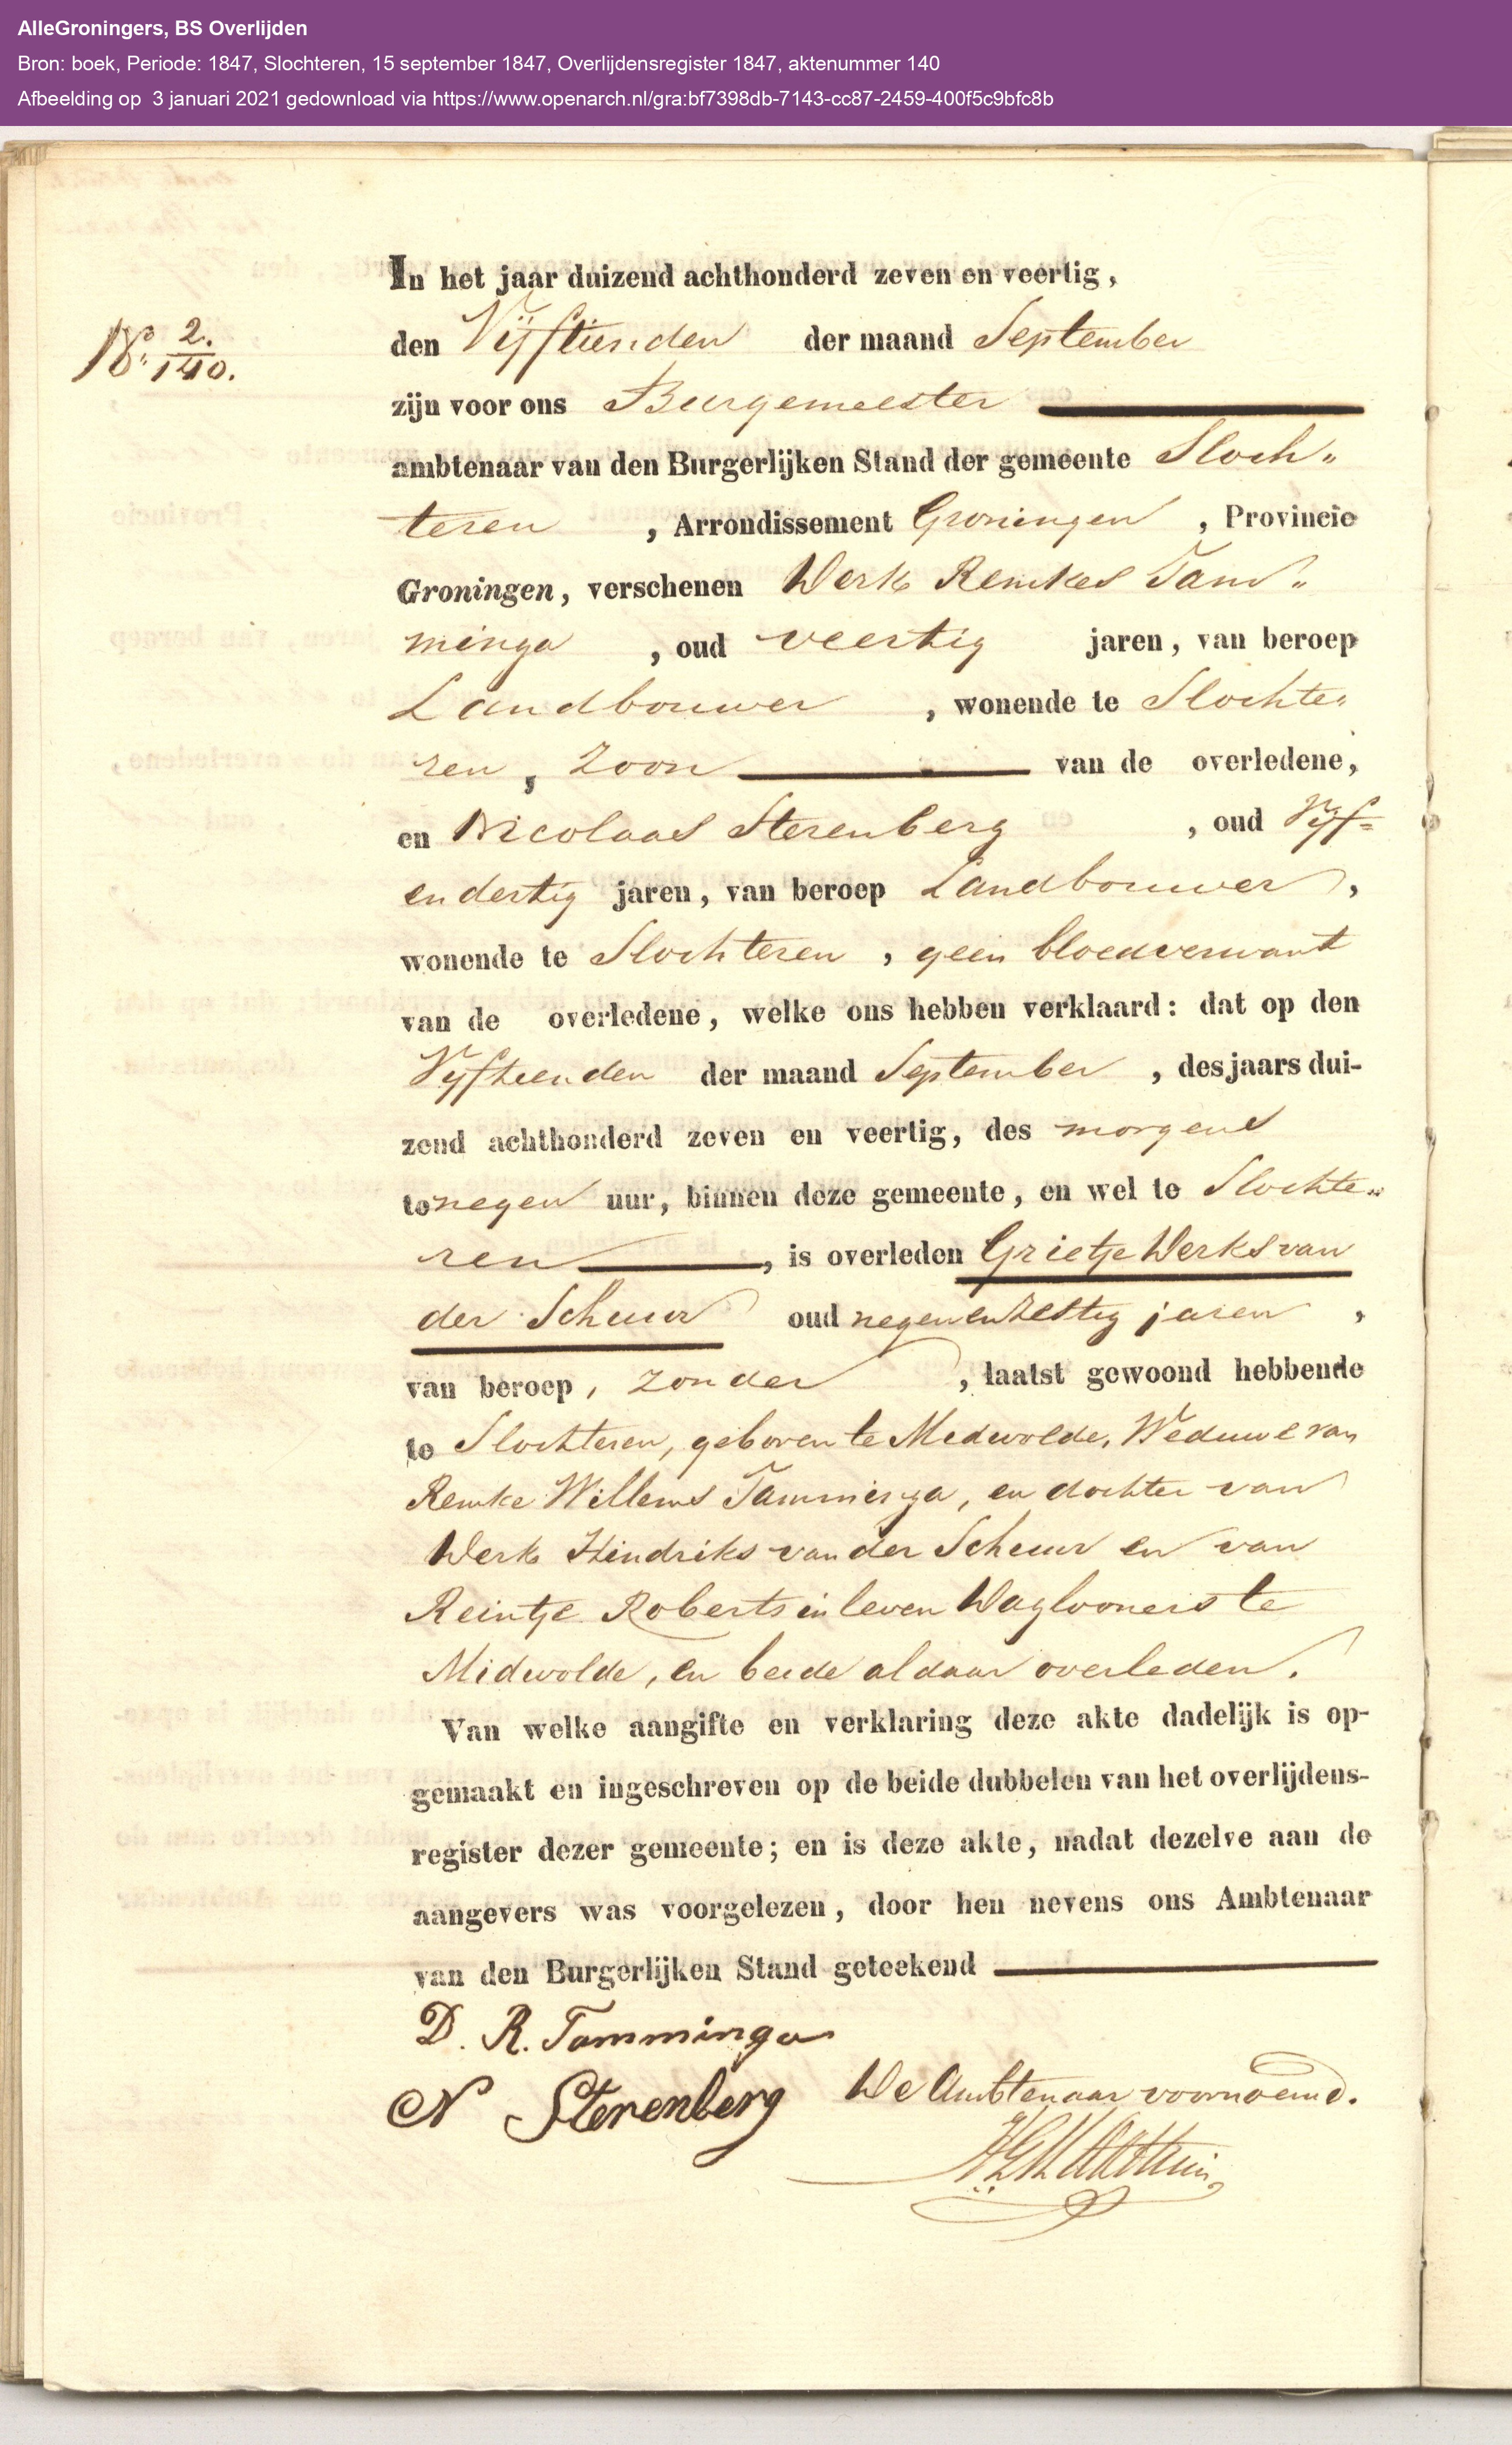 AlleGroningers, BS Overlijden
Bron: boek, Periode: 1847, Slochteren, 15 september 1847, Overlijdensregister 1847, aktenummer 140
Afbeelding op 3 januari 2021 gedownload via https://www.openarch.nl/gra:bf7398db-7143-cc87-2459-400f5c9bfc8b
In het jaar duizend achthonderd zeven en veertig,
No. 2./140.
den Vijftienden der maand September
zijn voor ons Burgemeester
ambtenaar van den Burgerlijken Stand der gemeente Sloch„
teren, Arrondissement Groningen, Provincie
Groningen, verschenen Derk Remkes Tam„
minga, oud veertig jaren, van beroep
Landbouwer, wonende te Slochte„
ren, Zoon van de overledene,
en Nicolaas Sterenberg, oud Vijf=
endertig jaren, van beroep Landbouwer,
wonende te Slochteren, geen bloedverwant
van de overledene, welke ons hebben verklaard: dat op den
Vijftienden der maand September, des jaars dui-
zend achthonderd zeven en veertig, des morgens
te negen uur, binnen deze gemeente, en wel te Slochte„
ren, is overleden Grietje Derks van
der Scheur oud negenenzestig jaren,
van beroep, zonder, laatst gewoond hebbende
te Slochteren, geboren te Midwolde, Weduwe van
Remke Willems Tamminga, en dochter van
Derk Hindriks van der Scheur en van
Reintje Roberts in leven Daglooners te
Midwolde, en beide aldaar overleden.
Van welke aangifte en verklaring deze akte dadelijk is op-
gemaakt en ingeschreven op de beide dubbelen van het overlijdens-
register dezer gemeente; en is deze akte, nadat dezelve aan de
aangevers was voorgelezen, door hen nevens ons Ambtenaar
van den Burgerlijken Stand geteekend
D. R. Tamminga
N Sterenberg De Ambtenaar voornoemd.